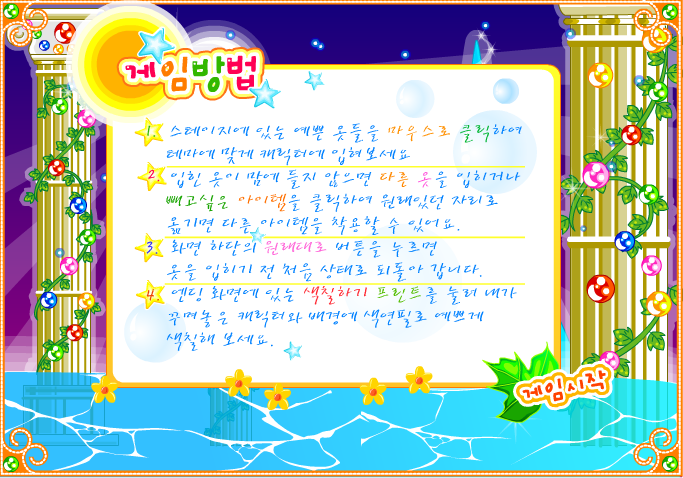 게임방법
1. 스테이지에 있는 예쁜 옷들을 마우스로 클릭하여
테마에 맞게 캐릭터에 입혀보세요
2. 입힌 옷이 맘에 들지 않으면 다른 옷을 입히거나
빼고싶은 아이템을 클릭하여 원래있던 자리로
옮기면 다른 아이템을 착용할 수 있어요.
3. 화면 하단의 원래대로 버튼을 누르면
옷을 입히기 전 처음 상태로 되돌아 갑니다.
4. 엔딩 화면에 있는 색칠하기 프린트를 눌러 내가
꾸며놓은 캐릭터와 배경에 색연필로 예쁘게
색칠해 보세요.
게임시작